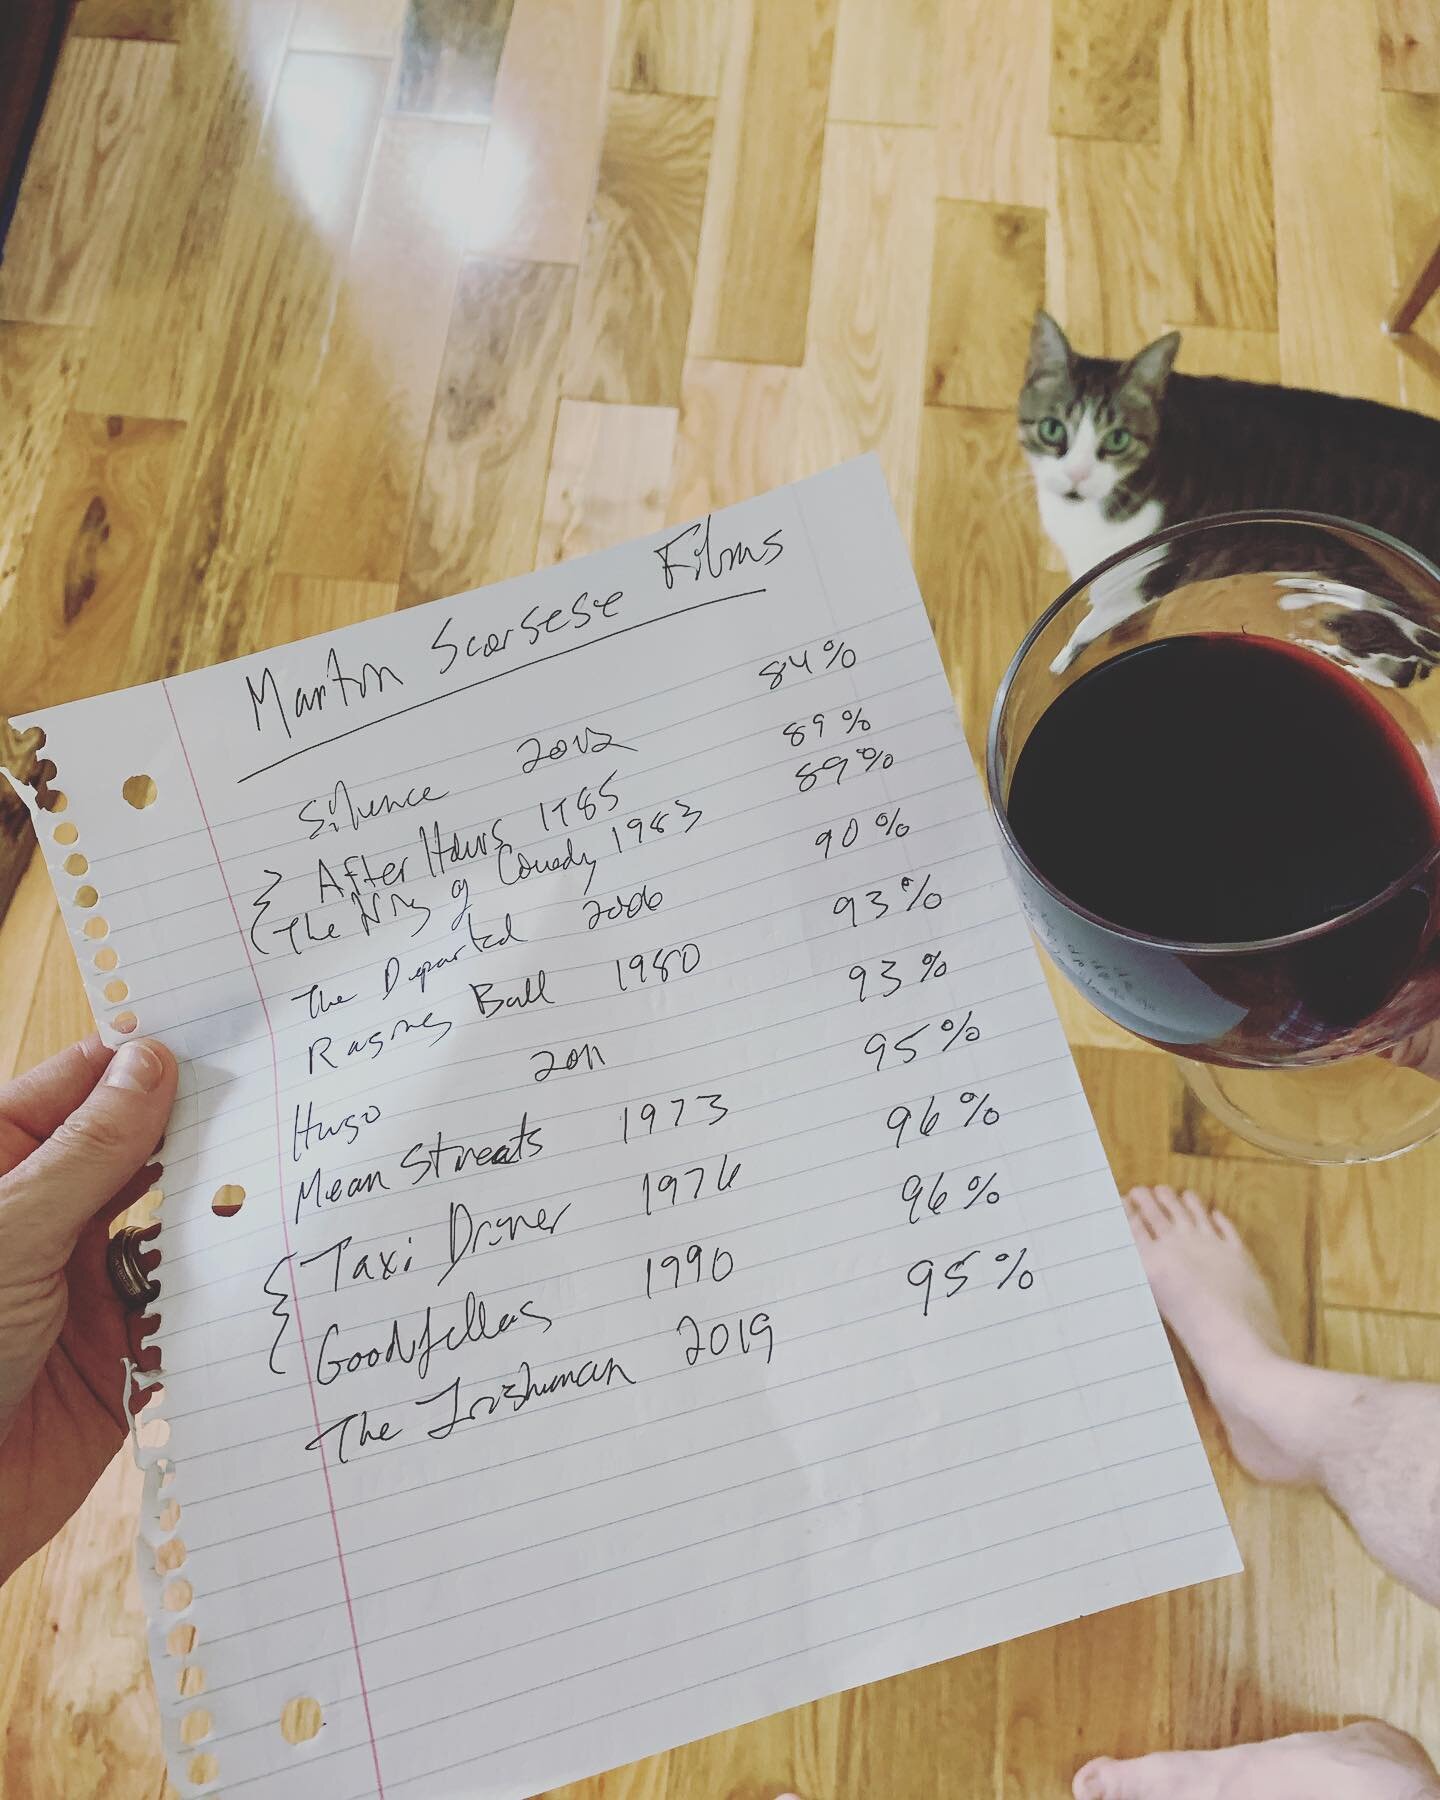 Martin Scorsese Films
Silence 2012 84%
After Hours 1985 89%
The King of Comedy 1983 89%
The Departed 2006 90%
Raging Bull 1980 93%
Hugo 2011 93%
Mean Streets 1973 95%
Taxi Driver 1976 96%
Goodfellas 1990 96%
The Irishman 2019 95%